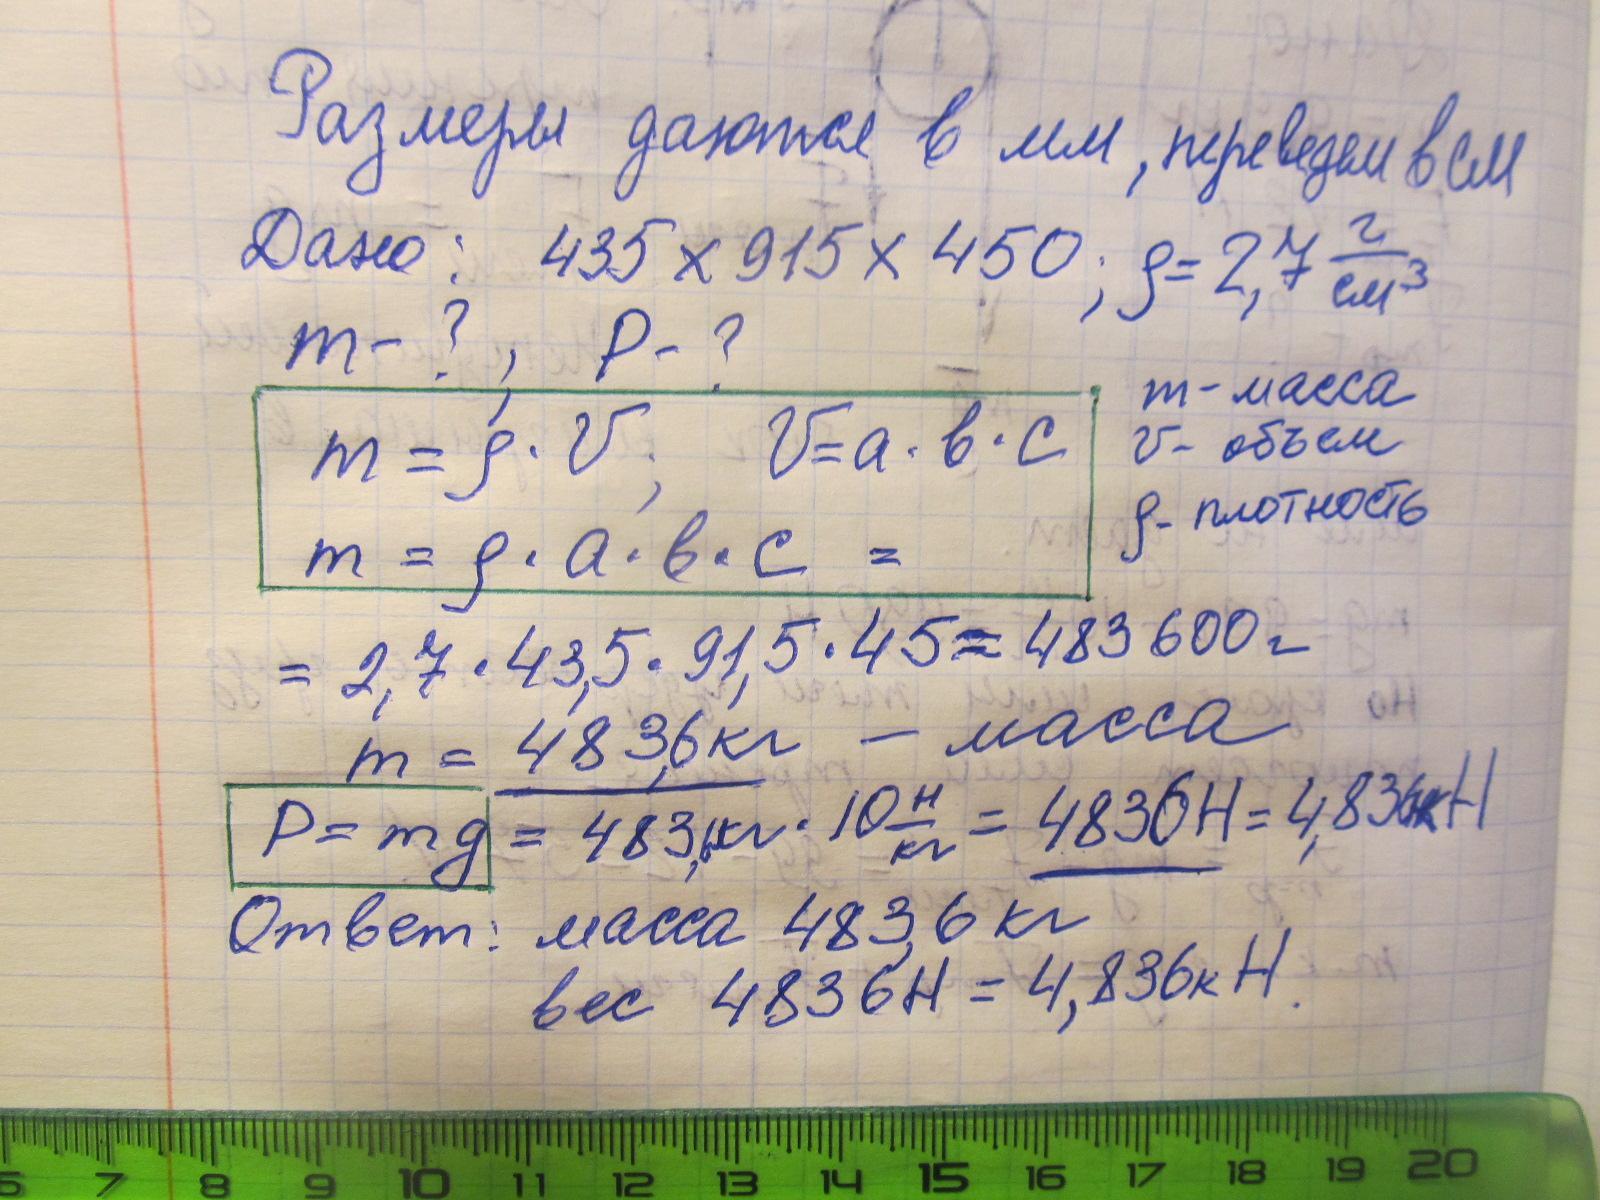 Размеры даются в мм, переведем в см
Дано: 435 х 915 х 450; ρ = 2,7 г/см³
m - ?, P - ?
m = ρ · V; V = a · в · c
m = ρ · a · в · c =
m - масса
V - объем
ρ - плотность
= 2,7 · 43,5 · 91,5 · 45 = 483600 г
m = 483,6 кг — масса
P = mg = 483,6 кг · 10 Н/кг = 4836 Н = 4,836 кН
Ответ: масса 483,6 кг
вес 4836 Н = 4,836 кН.
6 7 8 9 10 11 12 13 14 15 16 17 18 19 20